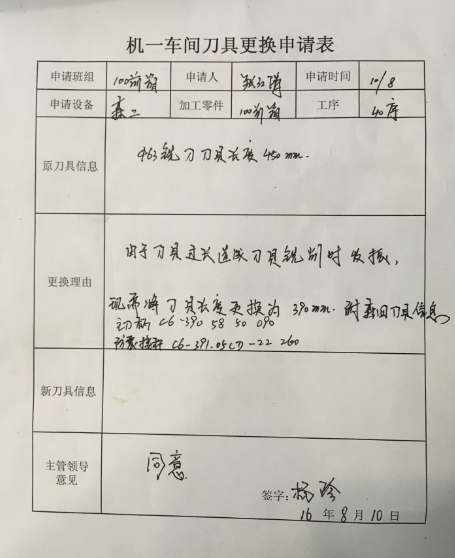 机一车间刀具更换申请表
申请班组 100前箱 申请人 申请时间 10/8
申请设备 加工零件 100前箱 工序 40序
原刀具信息 Φ63铣刀刀具长度450mm.
由于刀具过长造成刀具铣削时发振,
更换理由
现需将刀具长度更换为390mm. 附新旧刀具信息
C6-390 58 50 090
C6-391.05CD-22 260
新刀具信息
主管领导
意见
同意
签字: 杨珍
16年8月10日